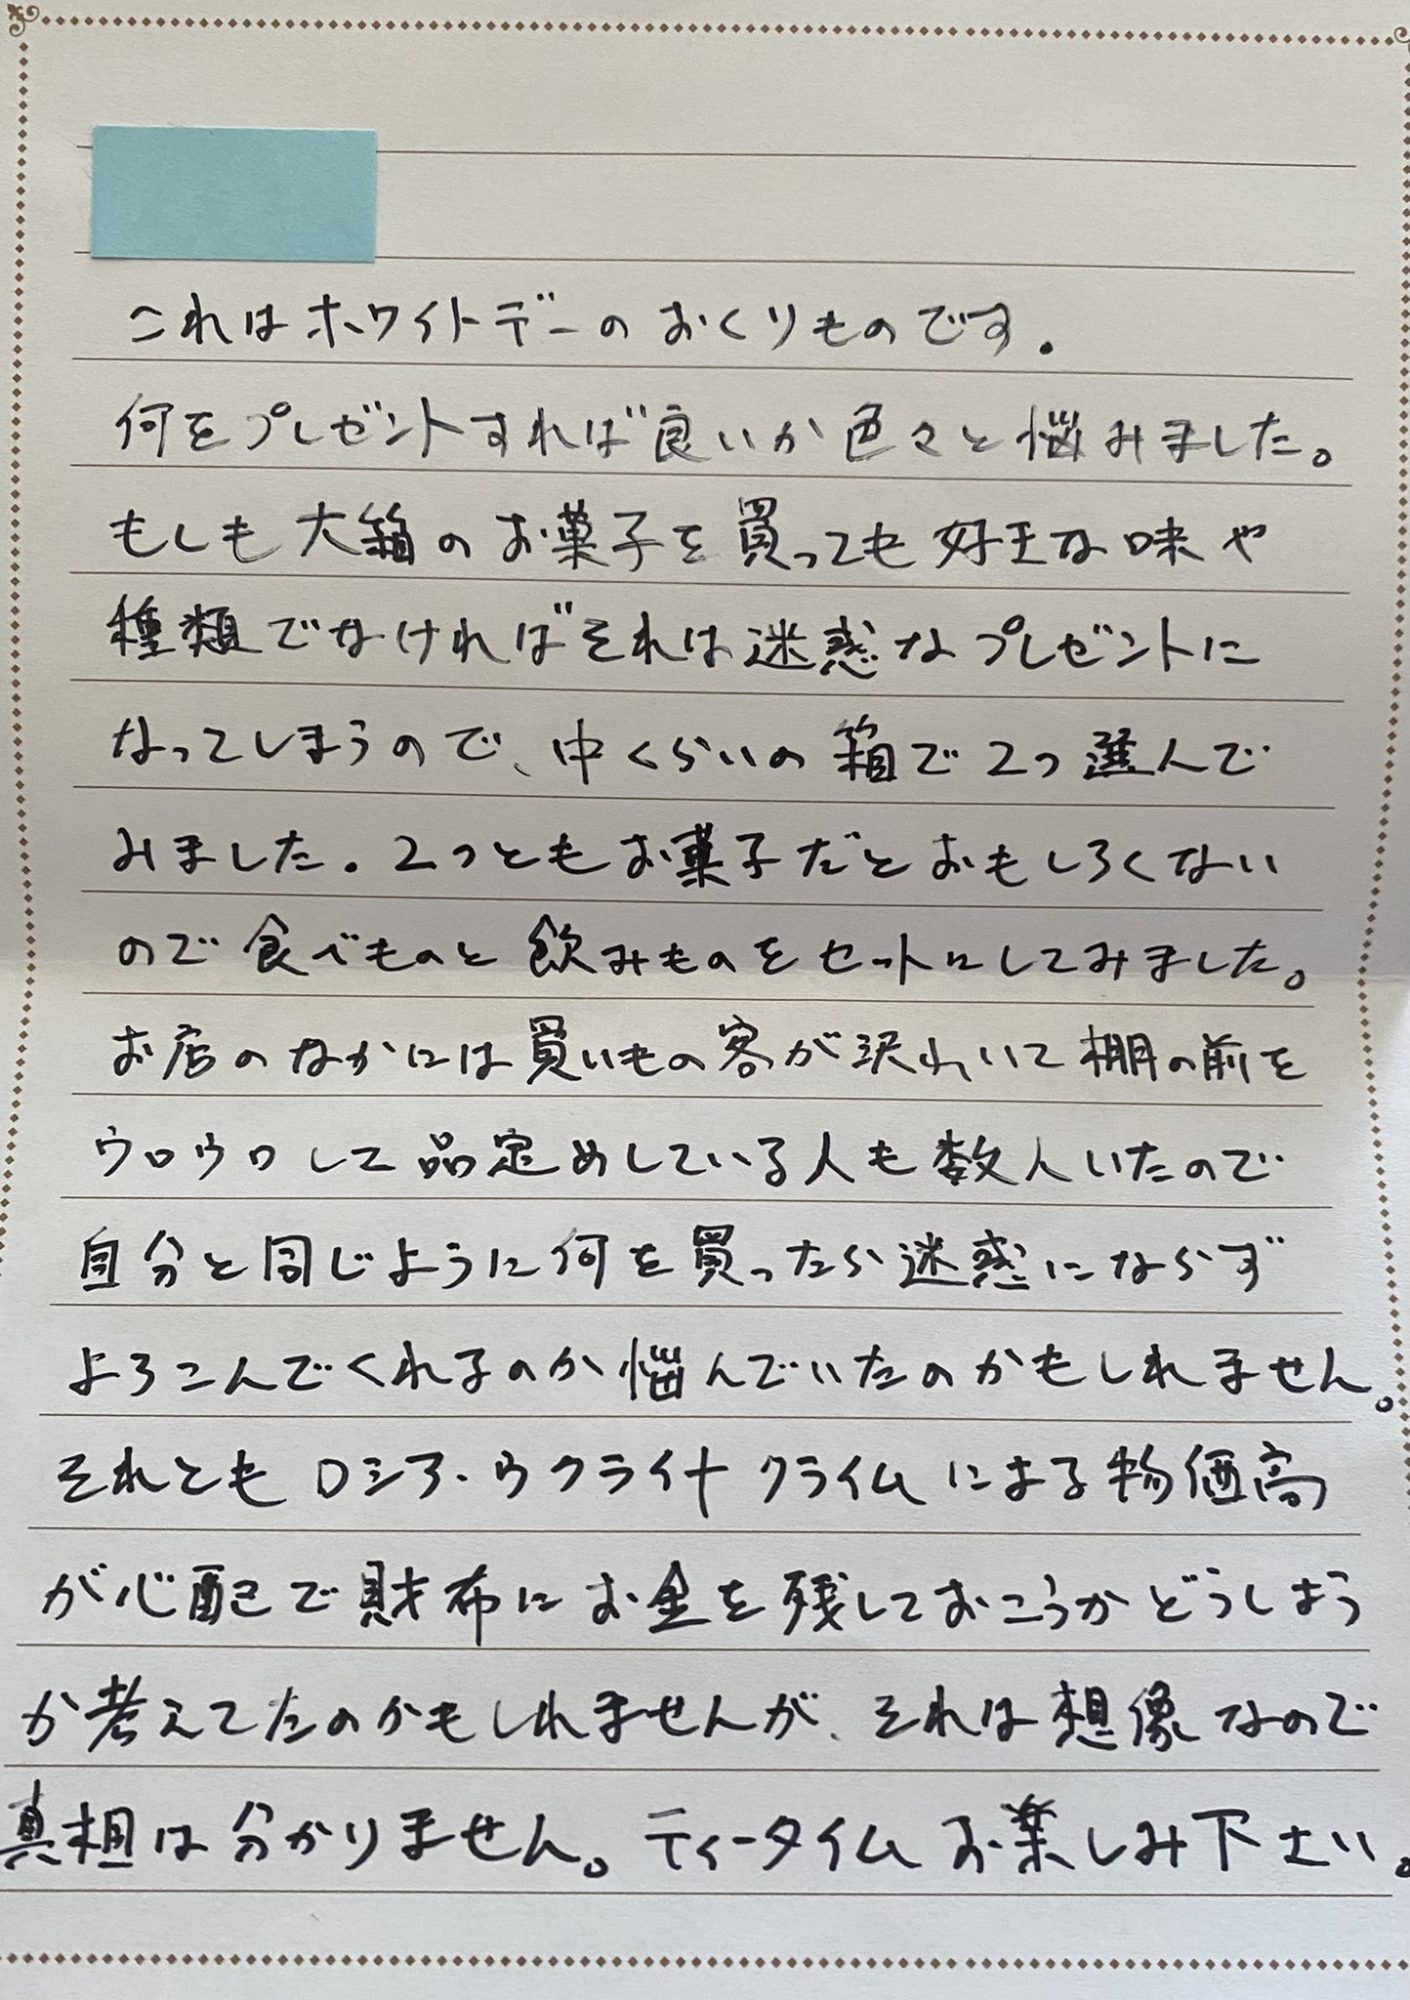 これはホワイトデーのおくりものです.
何をプレゼントすれば良いか色々と悩みました。
もしも大箱のお菓子を買っても好きな味や
種類でなければそれは迷惑なプレゼントに
なってしまうので、中くらいの箱で2つ選んで
みました.2つともお菓子だとおもしろくない
ので食べものと飲みものをセットにしてみました。
お店のなかには買いもの客が沢山いて棚の前を
ウロウロして品定めしている人も数人いたので
自分と同じように何を買ったら迷惑にならず
よろこんでくれるのか悩んでいたのかもしれません。
それともロシア・ウクライナクライムによる物価高
が心配で財布にお金を残しておこうかどうしよう
か考えてたのかもしれませんが、それは想像なので
真相は分かりません。ティータイムお楽しみ下さい。